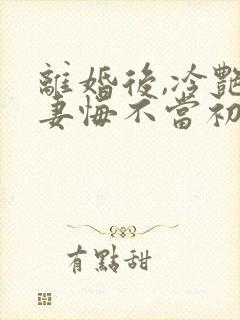 離婚後,冷艷
妻悔不當初
有點甜